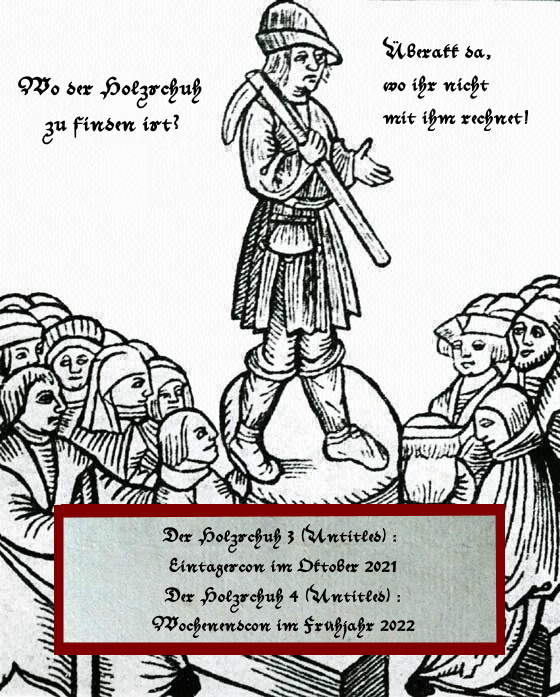 Wo der Holzschuh
zu finden ist?
Überall da,
wo ihr nicht
mit ihm rechnet!
Der Holzschuh 3 (Untitled) :
Eintagescon im Oktober 2021
Der Holzschuh 4 (Untitled) :
Wochenendcon im Frühjahr 2022